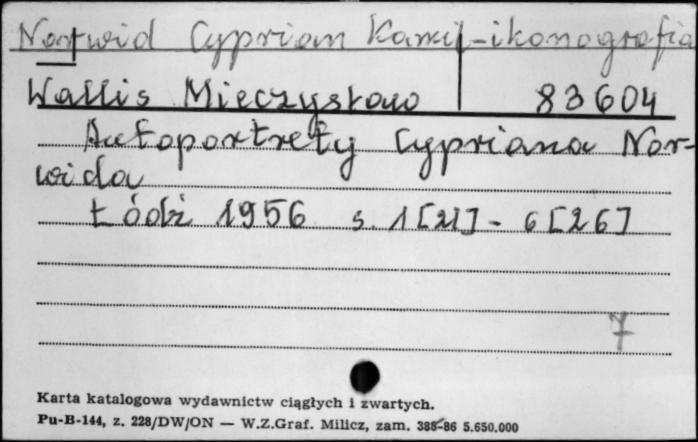 Norwid Cyprian Kamil - ikonografia
Wallis Mieczysław 83604
Autoportrety Cypriana Nor-
wida
Łódź 1956 s. 1 [21] - 6 [26]
7
Karta katalogowa wydawnictw ciągłych i zwartych.
Pu-B-144, z. 228/DW/ON — W.Z.Graf. Milicz, zam. 388-86 5.650.000